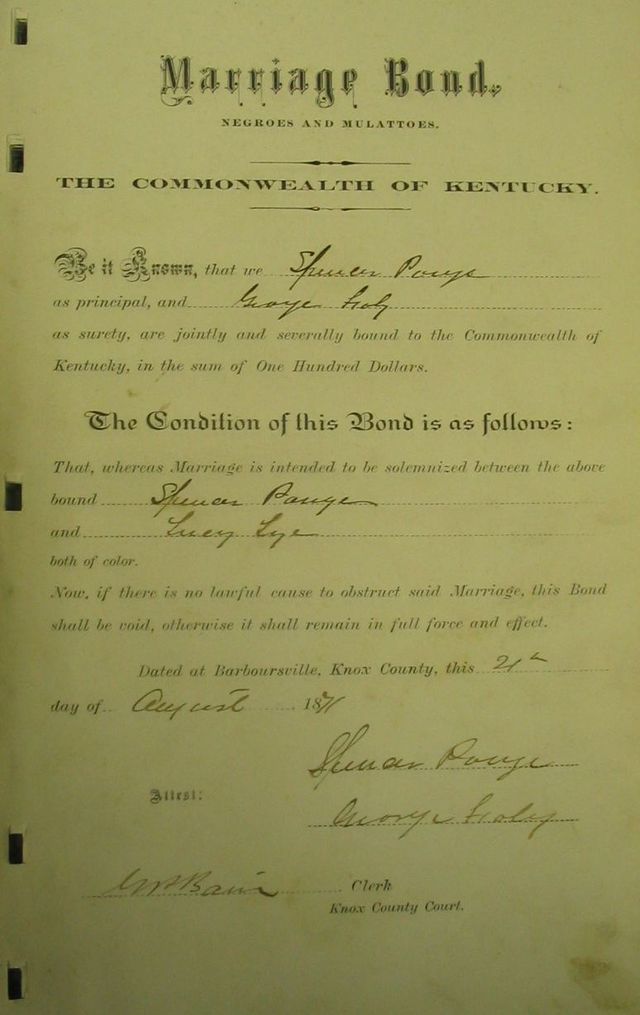 Marriage Bond.
NEGROES AND MULATTOES.
THE COMMONWEALTH OF KENTUCKY.
Be it Known, that we Spencer
as principal, and George
as surety, are jointly and severally bound to the Commonwealth of
Kentucky, in the sum of One Hundred Dollars.
The Condition of this Bond is as follows:
That, whereas Marriage is intended to be solemnized between the above
bound Spencer
and Lucy Lye
both of color.
Now, if there is no lawful cause to obstruct said Marriage, this Bond
shall be void, otherwise it shall remain in full force and effect.
Dated at Barboursville, Knox County, this 21
day of August 1871
Spencer
Attest:
George
Clerk
Knox County Court.